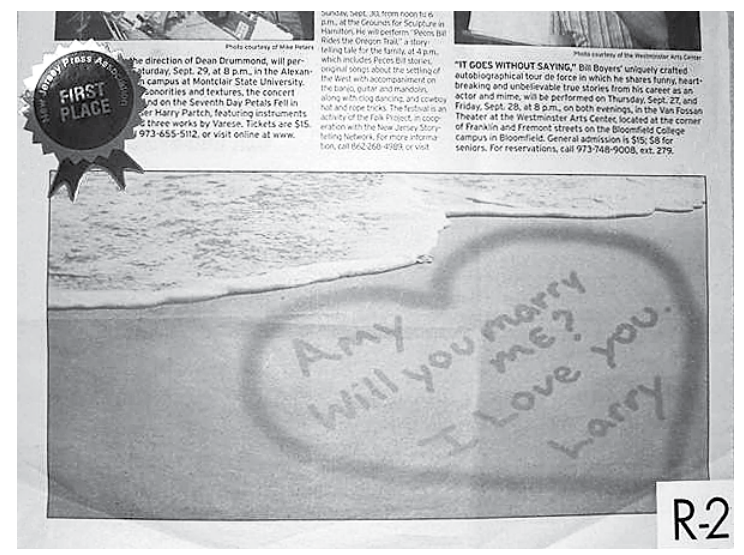 Photo courtesy of Mike Peters
the direction of Dean Drummond, will per-
Saturday, Sept. 29, at 8 p.m., in the Alexan-
campus at Montclair State University.
sonorities and textures, the concert
nd on the Seventh Day Petals Fell in
ser Harry Partch, featuring instruments
three works by Varese. Tickets are $15.
973-655-5112, or visit online at www.
Sunday, Sept. 30, from noon to 6
p.m., at the Grounds for Sculpture in
Hamilton. He will perform "Pecos Bill
Rides the Oregon Trail," a story-
telling tale for the family, at 4 p.m.,
which includes Pecos Bill stories,
original songs about the settling of
the West with accompaniment on
the banjo, guitar and mandolin,
along with clog dancing, and cowboy
hat and rope tricks. The festival is an
activity of the Folk Project, in coop-
eration with the New Jersey Story-
telling Network. For more informa-
tion, call 862-268-4989, or visit
Photo courtesy of the Westminster Arts Center
"IT GOES WITHOUT SAYING," Bill Bowers' uniquely crafted
autobiographical tour de force in which he shares funny, heart-
breaking and unbelievable true stories from his career as an
actor and mime, will be performed on Thursday, Sept. 27, and
Friday, Sept. 28, at 8 p.m., on both evenings, in the Van Fossan
Theater at the Westminster Arts Center, located at the corner
of Franklin and Fremont streets on the Bloomfield College
campus in Bloomfield. General admission is $15; $8 for
seniors. For reservations, call 973-748-9008, ext. 279.
New Jersey Press Association
FIRST
PLACE
Amy
Will you marry
me?
I Love you.
Larry
R-2